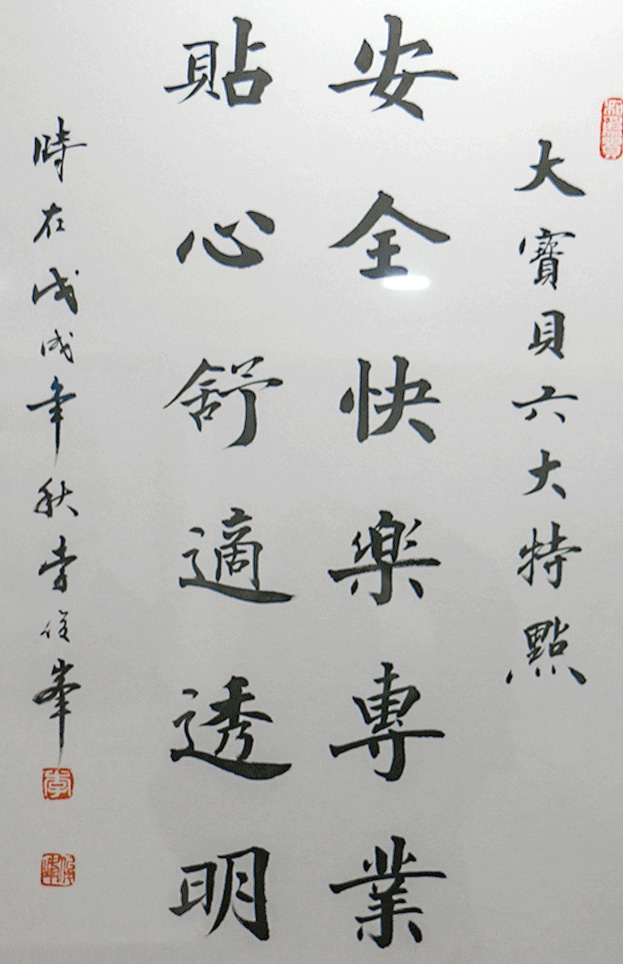 大寶貝六大特點
安全快樂專業
貼心舒適透明
時在戊戌年秋李佳峯